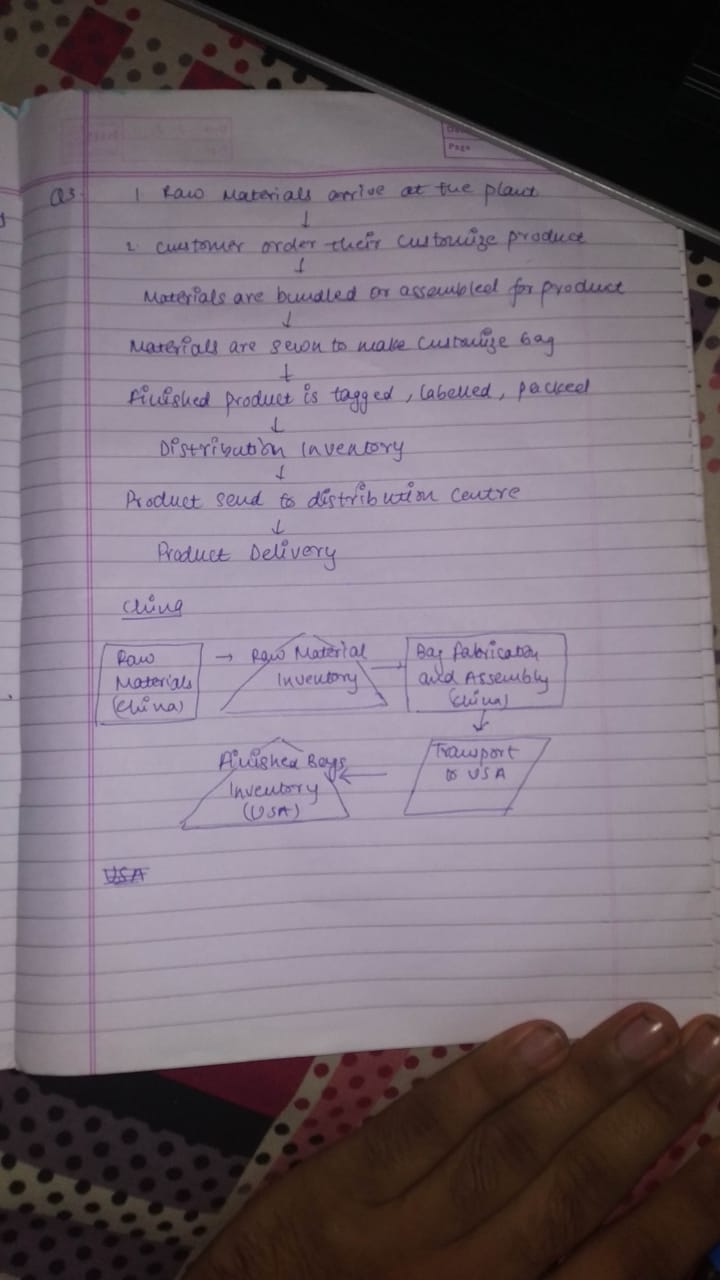 Page
Q3.
1 Raw Materials arrive at the plant
↓
2. Customer order their customize product
↓
Materials are bundled or assembled for product
↓
Materials are sewn to make customize bag
↓
finished product is tagged, labelled, packed
↓
Distribution Inventory
↓
Product send to distribution centre
↓
Product Delivery
China
Raw Materials (China) → Raw Material Inventory → Bag fabrication and Assembly (China)
↓
Finished Bags Inventory (USA) ← Transport to USA
USA